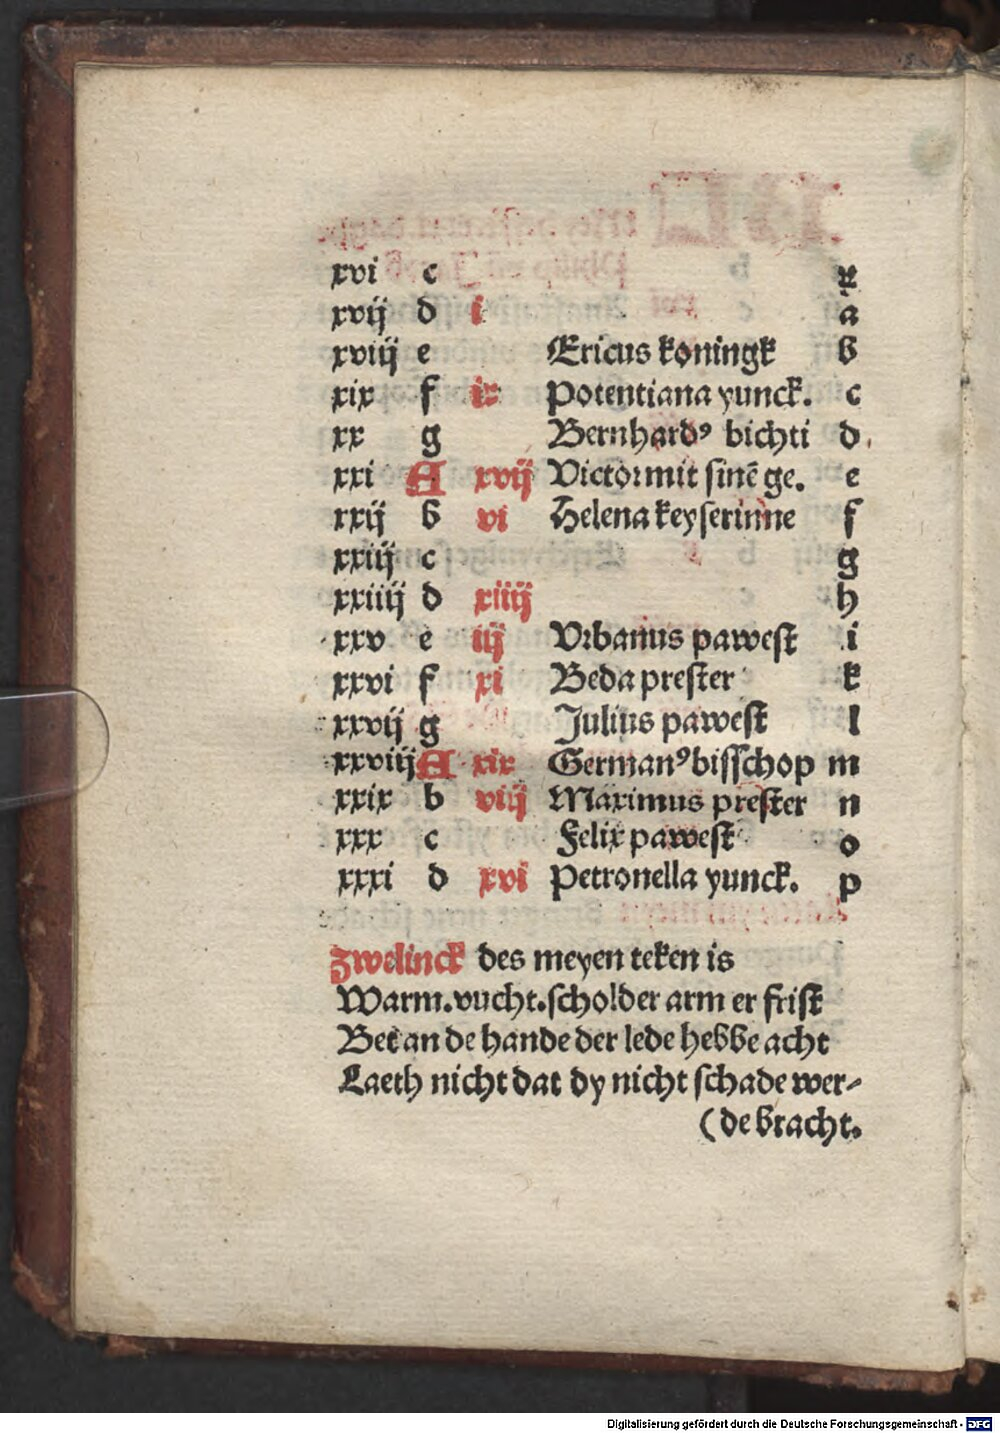 xvi c ꝛ
xvij d i a
xviij e Ericus koningk b
xix f ix Potentiana yunck. c
xx g Bernhardꝰ bichti d.
xxi A xvij Victor mit sinē ge. e
xxij b vi Helena keyserinne f
xxiij c g
xxiiij d xiiij h
xxv e iij Vrbanus pawest i
xxvi f xi Beda prester k
xxvij g Julius pawest l
xxviij A xix Germanꝰ bisschop m
xxix b viij Maximus prester n
xxx c Felix pawest o
xxxi d xvi Petronella yunck. p
Zwelinck des meyen teken is
Warm. vucht. scholder arm er frist
Bet an de hande der lede hebbe acht
Laeth nicht dat dy nicht schade wer-
(de bracht.
Digitalisierung gefördert durch die Deutsche Forschungsgemeinschaft - DFG